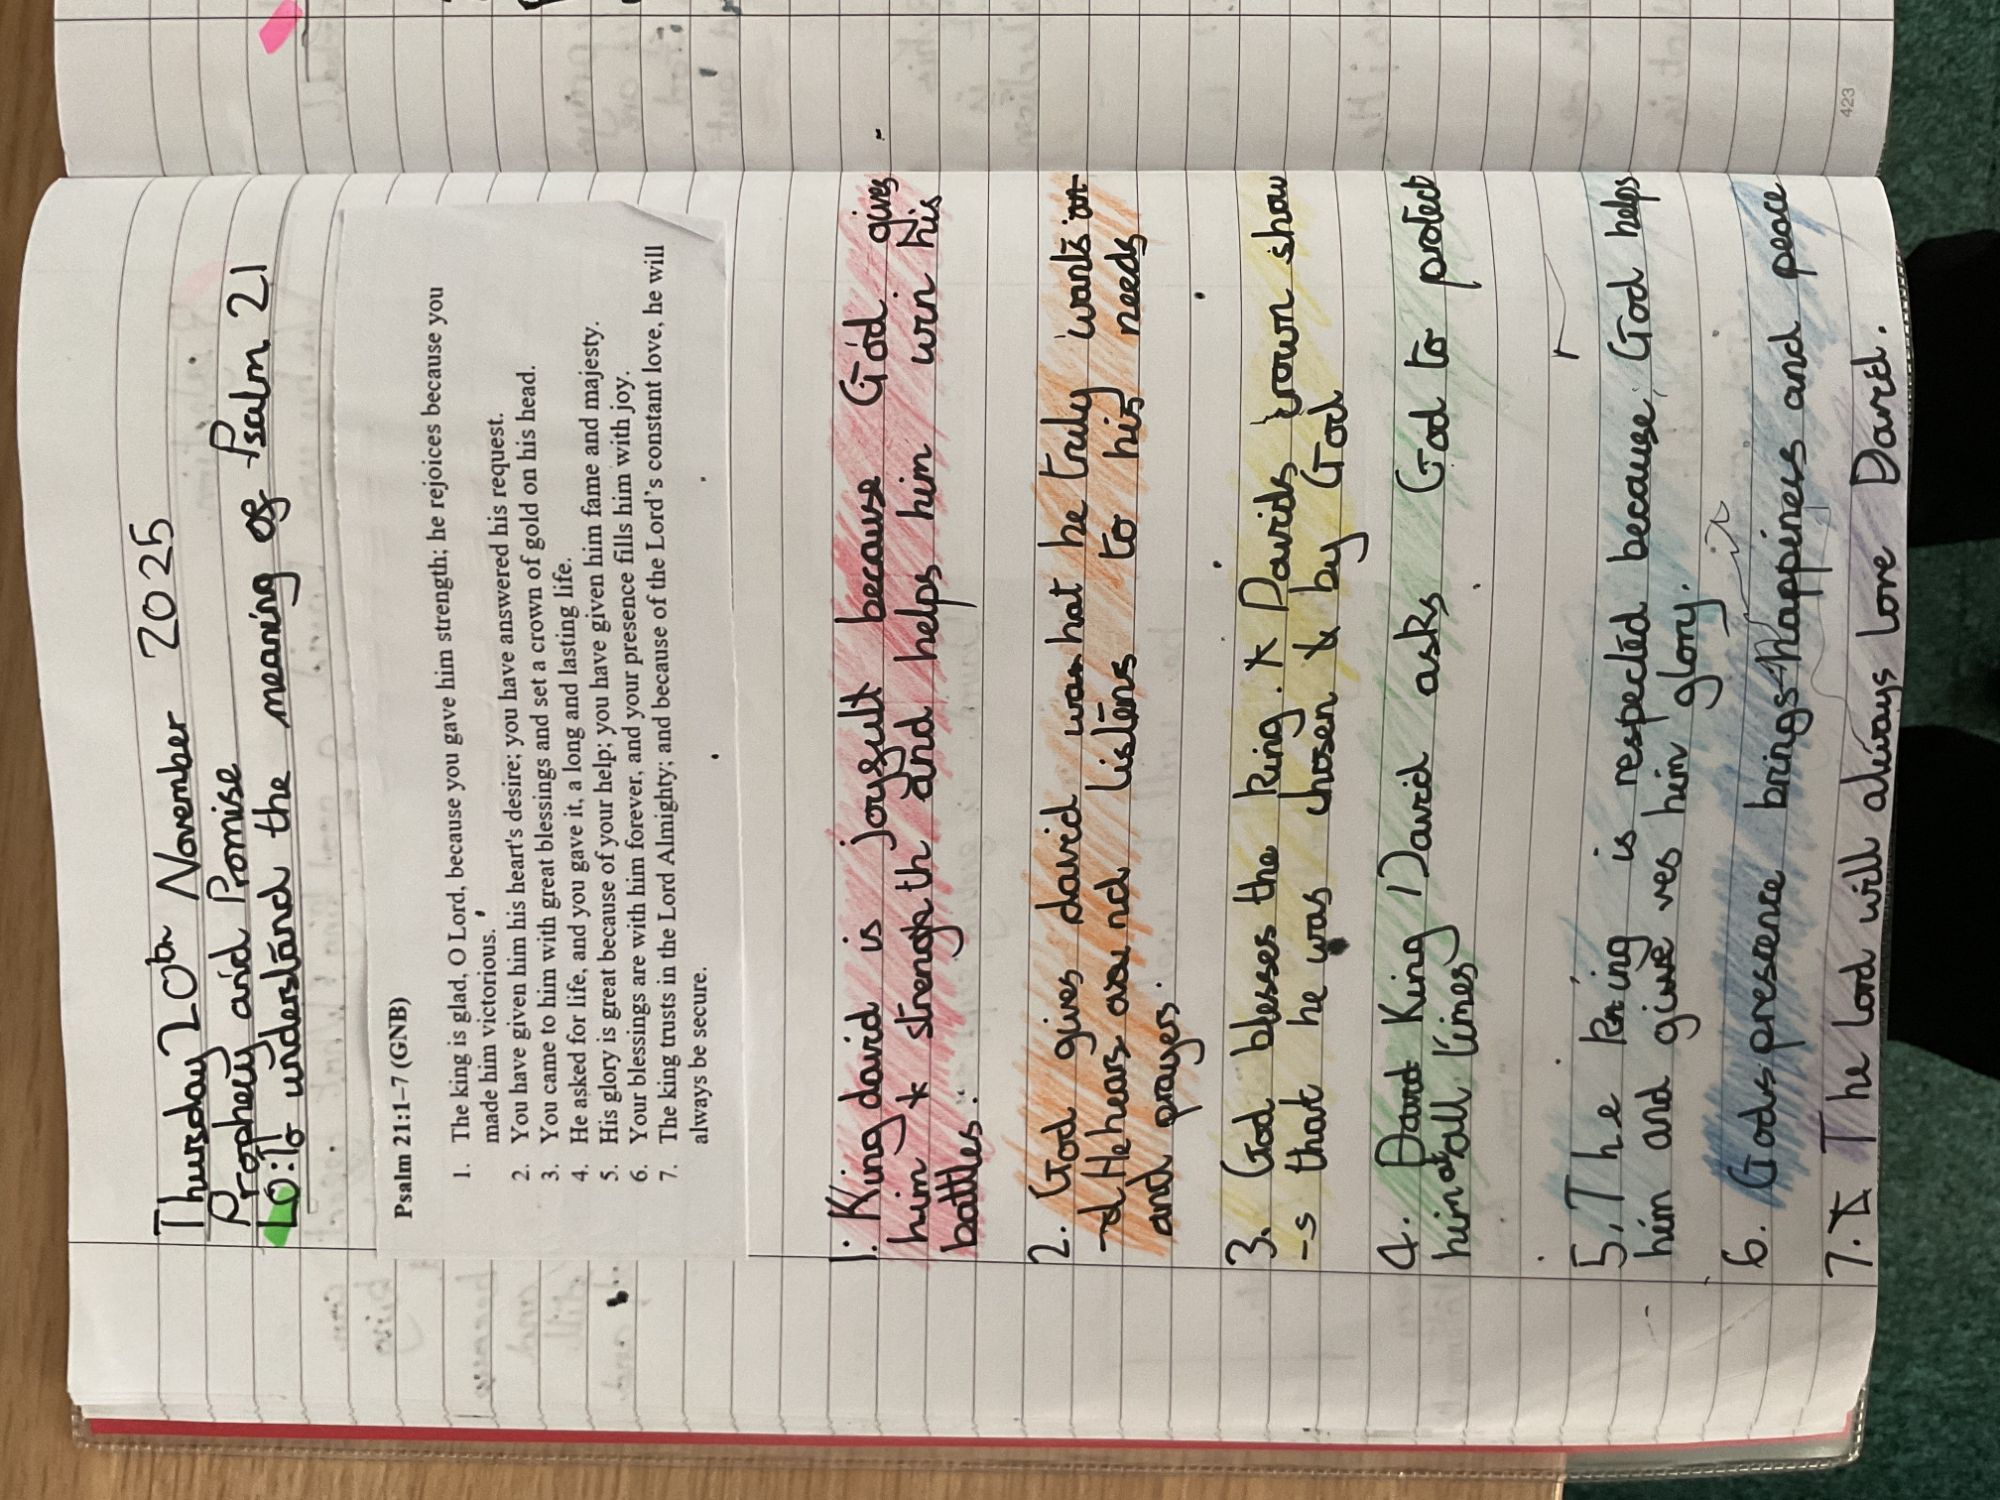 Thursday 20th November 2025
Prophecy and Promise
LO: To understand the meaning of Psalm 21
Psalm 21:1–7 (GNB)
1. The king is glad, O Lord, because you gave him strength; he rejoices because you
made him victorious.
2. You have given him his heart's desire; you have answered his request.
3. You came to him with great blessings and set a crown of gold on his head.
4. He asked for life, and you gave it, a long and lasting life.
5. His glory is great because of your help; you have given him fame and majesty.
6. Your blessings are with him forever, and your presence fills him with joy.
7. The king trusts in the Lord Almighty; and because of the Lord's constant love, he will
always be secure.
1. King david is joyfull because God gives
him strength and helps him win his
battles.
2. God gives david what he truly wants
He hears and listens to his needs
and prayers.
3. God blesses the king. Davids crown show
-s that he was chosen by God
4. King David asks God to protect
him at all times
5. The king is respected because God helps
him and give ves him glory.
6. Gods presence brings happiness and peace
7. The lord will always love David.
423